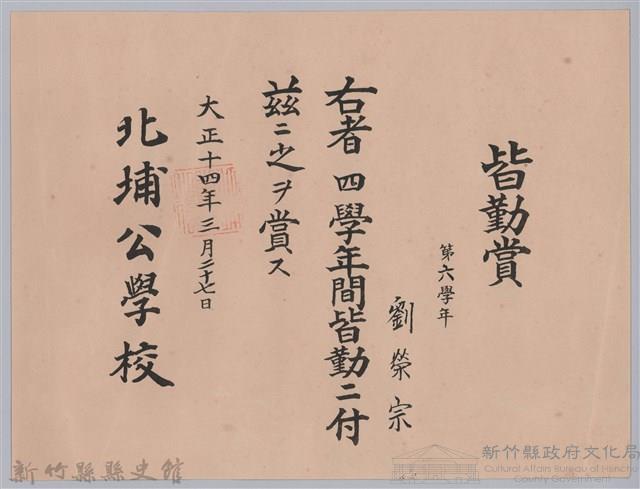 皆勤賞
第六學年
劉榮宗
右者四學年間皆勤ニ付
茲ニ之ヲ賞ス
大正十四年三月二十七日
北埔公學校
新竹縣縣史館
新竹縣政府文化局
Cultural Affairs Bureau of Hsinchu
County Government